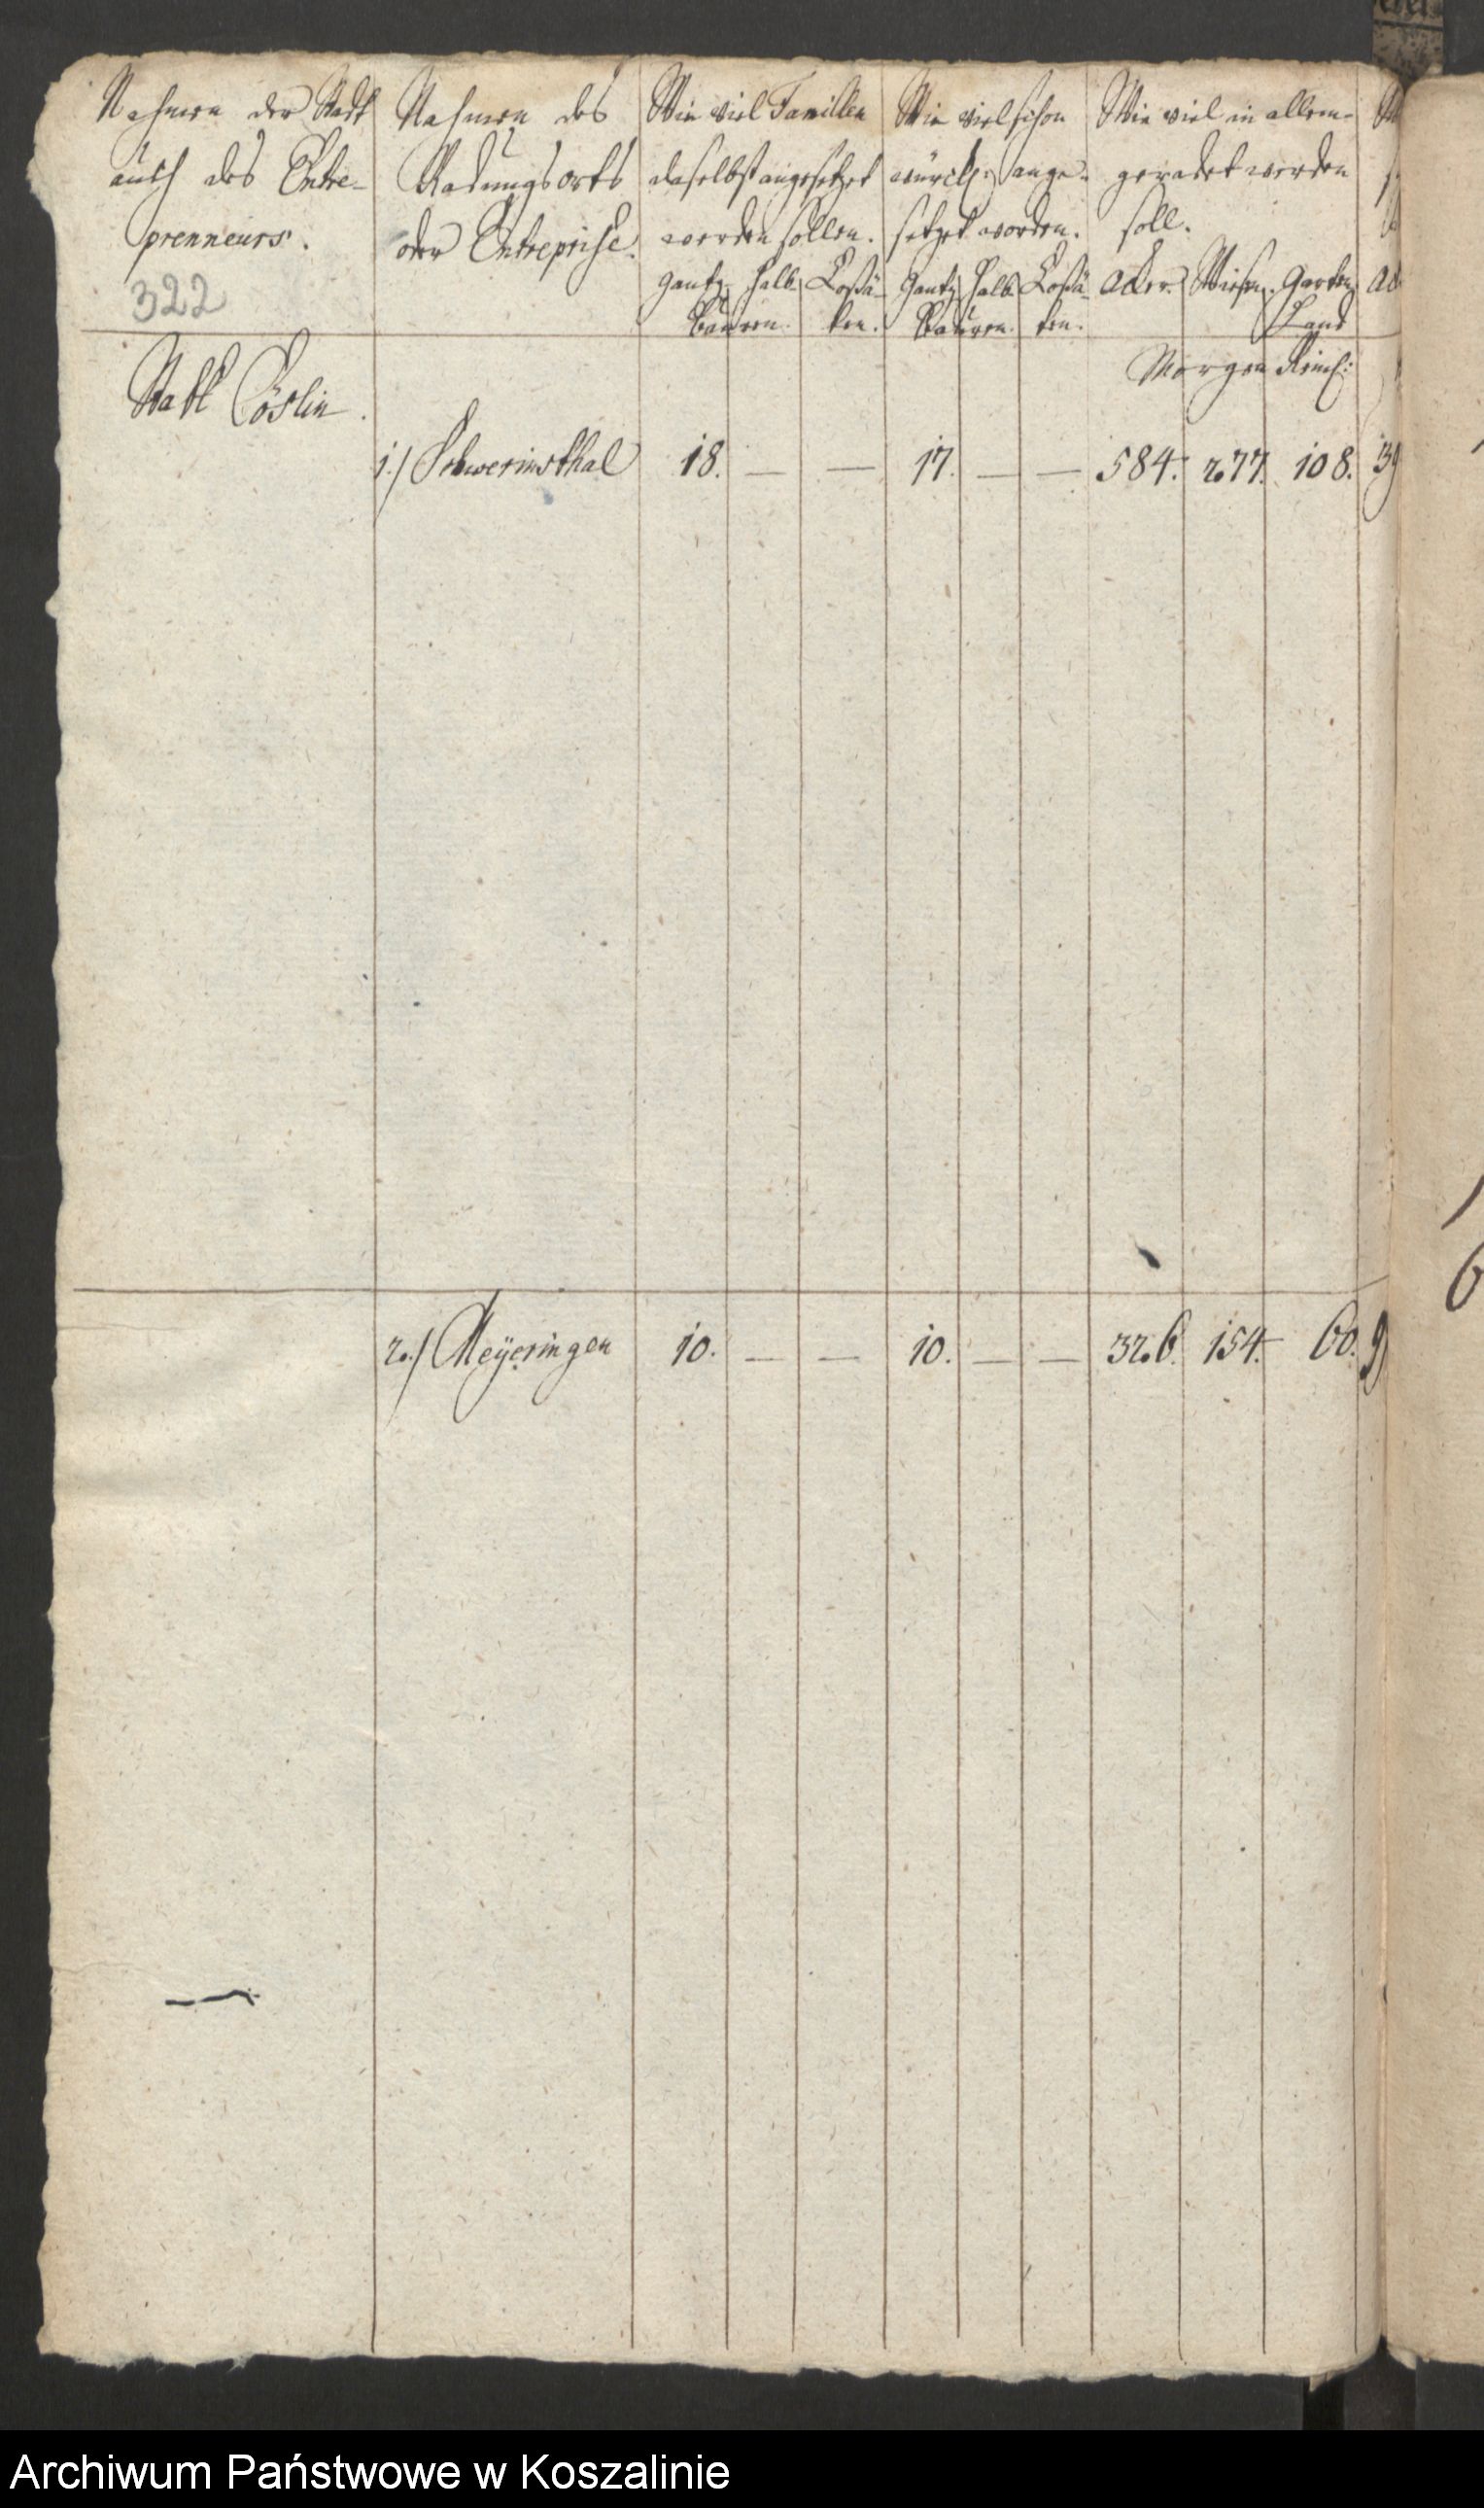 Nahmen der Stadt
auch des Entre-
prenneurs.
322
Nahmen des
Radungsorts
oder Entreprise.
Wie viel Familien
daselbst angesetzet
werden sollen.
Gantz- Halb- Coßä-
Bauren. ten.
Wie viel schon
würckl: ange-
setzet worden.
Gantz Halb Coßä-
Bauren. ten.
Wie viel in allem
geradet werden
soll.
Acker. Wiesen. Garten
Land
Morgen Reinl:
Stadt Cöslin.
1./ Schwerinsthal 18. — — 17. — — 584. 277. 108.
2./ Meÿeringen 10. — — 10. — — 326. 154. 60.
Archiwum Państwowe w Koszalinie